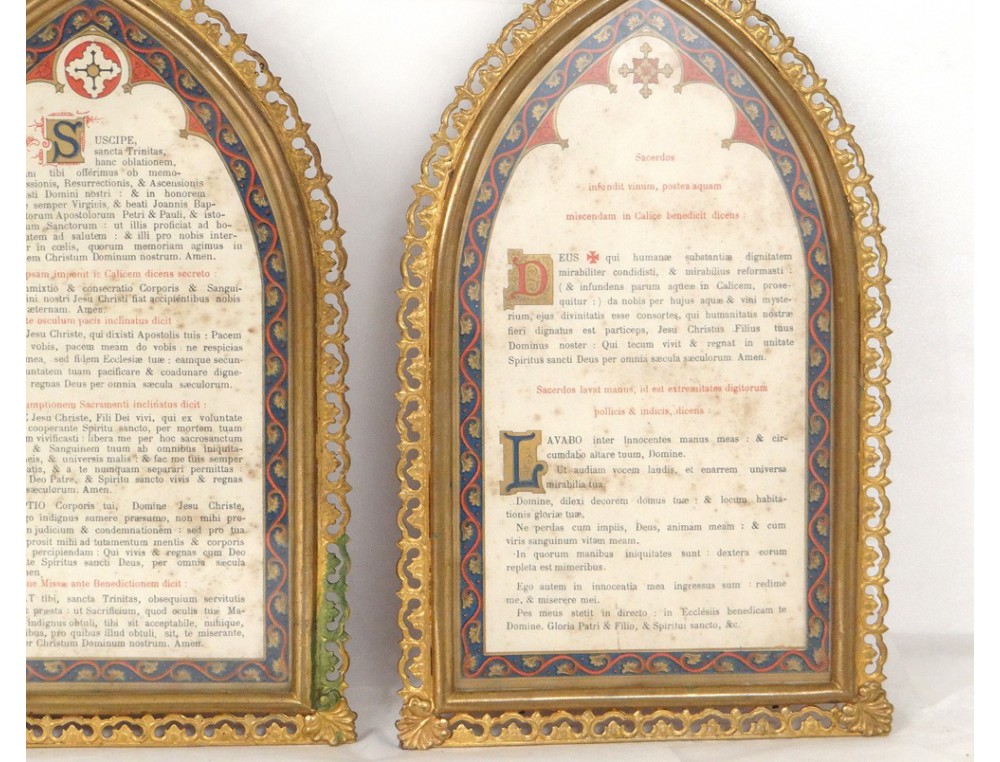 SUSCIPE,
sancta Trinitas,
hanc oblationem,
tibi offérimus ob memo-
ssionis, Resurrectionis, & Ascensionis
sti Domini nostri : & in honorem
semper Virginis, & beati Joannis Bap-
torum Apostolorum Petri & Pauli, & isto-
um Sanctorum : ut illis proficiat ad ho-
tem ad salutem : & illi pro nobis inter-
r in cœlis, quorum memoriam agimus in
em Christum Dominum nostrum. Amen.
psam imponit ic Calicem dicens secreto :
mmixtio & consecratio Corporis & Sangui-
ini nostri Jesu Christi fiat accipientibus nobis
æternam. Amen.
te osculum pacis inclinatus dicit :
Jesu Christe, qui dixisti Apostolis tuis : Pacem
vobis, pacem meam do vobis : ne respicias
mea, sed fidem Ecclesiæ tuæ : eamque secun-
untatem tuam pacificare & coadunare digne-
regnas Deus per omnia sæcula sæculorum.
umptionem Sacramenti inclinatus dicit :
Jesu Christe, Fili Dei vivi, qui ex voluntate
cooperante Spiritu sancto, per mortem tuam
m vivificasti : libera me per hoc sacrosanctum
& Sanguinem tuum ab omnibus iniquita-
eis, & universis malis : & fac me tuis semper
atis, & a te nunquam separari permittas :
Deo Patre, & Spiritu sancto vivis & regnas
sæculorum. Amen.
TIO Corporis tui, Domine Jesu Christe,
go indignus sumere præsumo, non mihi pro-
n judicium & condemnationem : sed pro tua
prosit mihi ad tutamentum mentis & corporis
percipiendam : Qui vivis & regnas cum Deo
te Spiritus sancti Deus, per omnia sæcula
men.
ne Missæ ante Benedictionem dicit :
T tibi, sancta Trinitas, obsequium servitutis
præsta : ut Sacrificium, quod oculis tuæ Ma-
indignus obtuli, tibi sit acceptabile, mihique,
ibus, pro quibus illud obtuli, sit, te miserante,
er Christum Dominum nostrum. Amen.
Sacerdos
infundit vinum, postea aquam
miscendam in Calice benedicit dicens :
DEUS ✠ qui humanæ substantiæ dignitatem
mirabiliter condidisti, & mirabilius reformasti :
( & infundens parum aquæ in Calicem, prose-
quitur : ) da nobis per hujus aquæ & vini myste-
rium, ejus divinitatis esse consortes, qui humanitatis nostræ
fieri dignatus est particeps, Jesu Christus Filius tuus
Dominus noster : Qui tecum vivit & regnat in unitate
Spiritus sancti Deus per omnia sæcula sæculorum. Amen.
Sacerdos lavat manus, id est extremitates digitorum
pollicis & indicis, dicens :
LAVABO inter Innocentes manus meas : & cir-
cumdabo altare tuum, Domine.
Ut audiam vocem laudis, et enarrem universa
mirabilia tua.
Domine, dilexi decorem domus tuæ : & locum habita-
tionis gloriæ tuæ.
Ne perdas cum impiis, Deus, animam meam : & cum
viris sanguinum vitam meam.
In quorum manibus iniquitates sunt : dextera eorum
repleta est mimeribus.
Ego autem in innocentia mea ingressus sum : redime
me, & miserere mei.
Pes meus stetit in directo : in Ecclésiis benedicam te
Domine. Gloria Patri & Filio, & Spiritui sancto, &c.